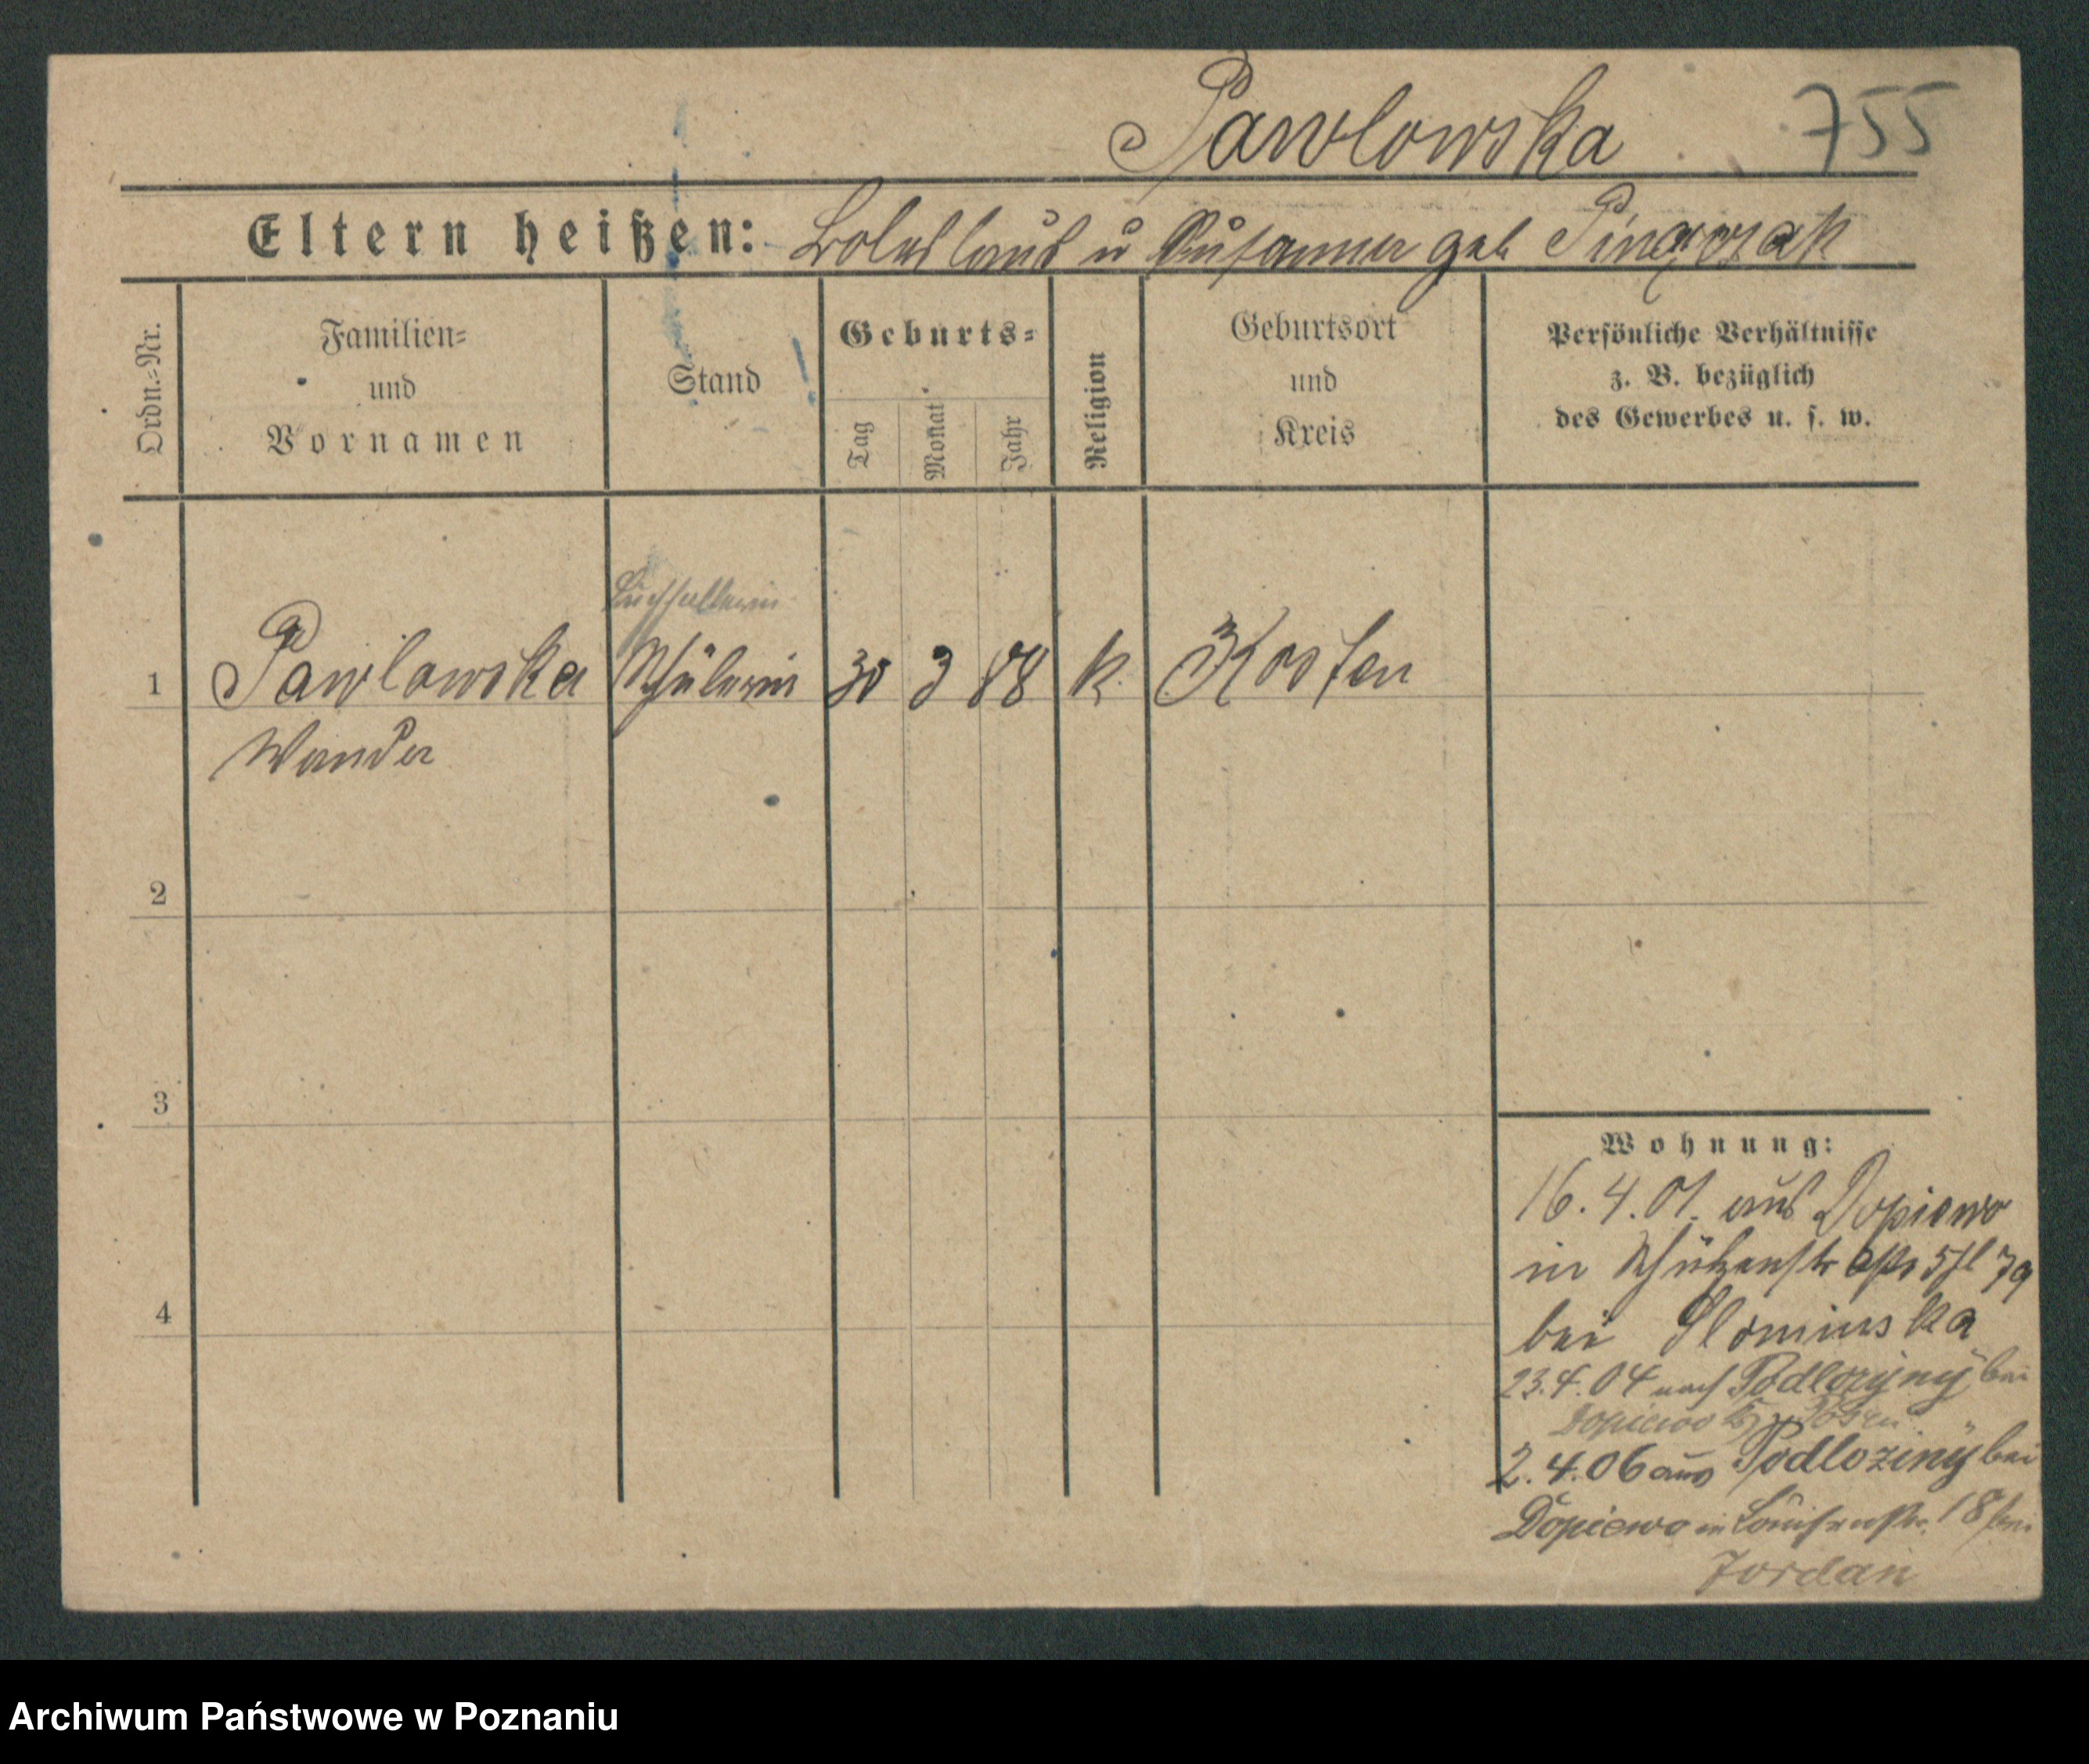 Pawlowska 755
Eltern heißen: Boleslaus u Susanna geb
Ordn.=Nr.
Familien=
und
Vornamen
Stand
Geburts=
Tag
Monat
Jahr
Religion
Geburtsort
und
Kreis
Persönliche Verhältnisse
z. B. bezüglich
des Gewerbes u. s. w.
Buchhalterin
1 Pawlowska Schülerin 30 3 88 k. Kosten
Wanda
2
3
4
Wohnung:
16.4.01. aus Dopiewo
in Schützenstr
bei Slominska
23.4.04 nach bei
Dopiewo Posen
2.4.06 aus Podloziny bei
Dopiewo in Louisenstr. 18 bei
Jordan
Archiwum Państwowe w Poznaniu